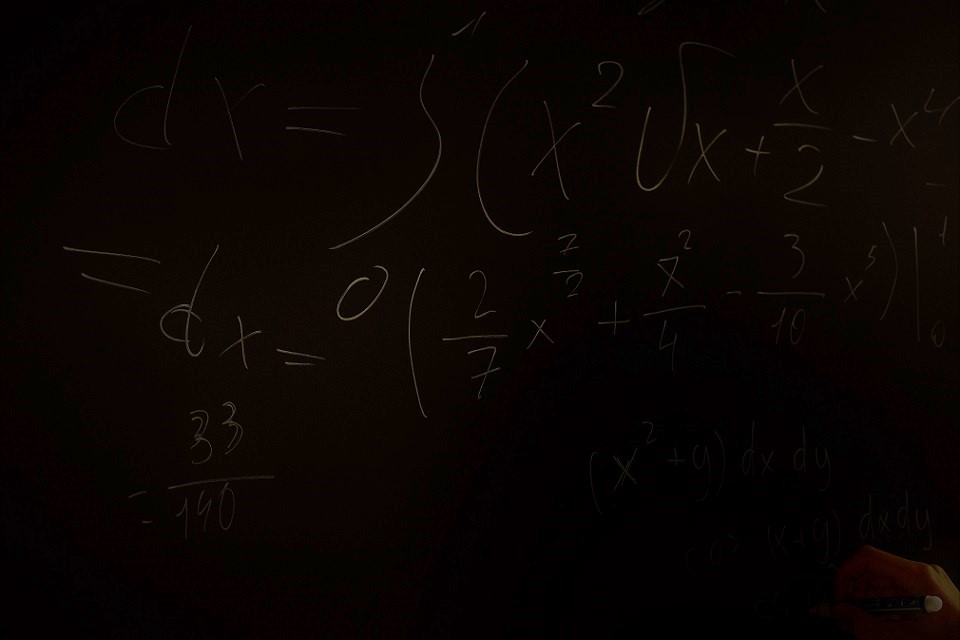 dx = ∫₀¹ (x²√x + x/2 - x⁴
= dx = (2/7 x^(7/2) + x²/4 - 3/10 x⁵)|₀¹
= 33/140
(x² + y) dx dy
(x+y) dxdy